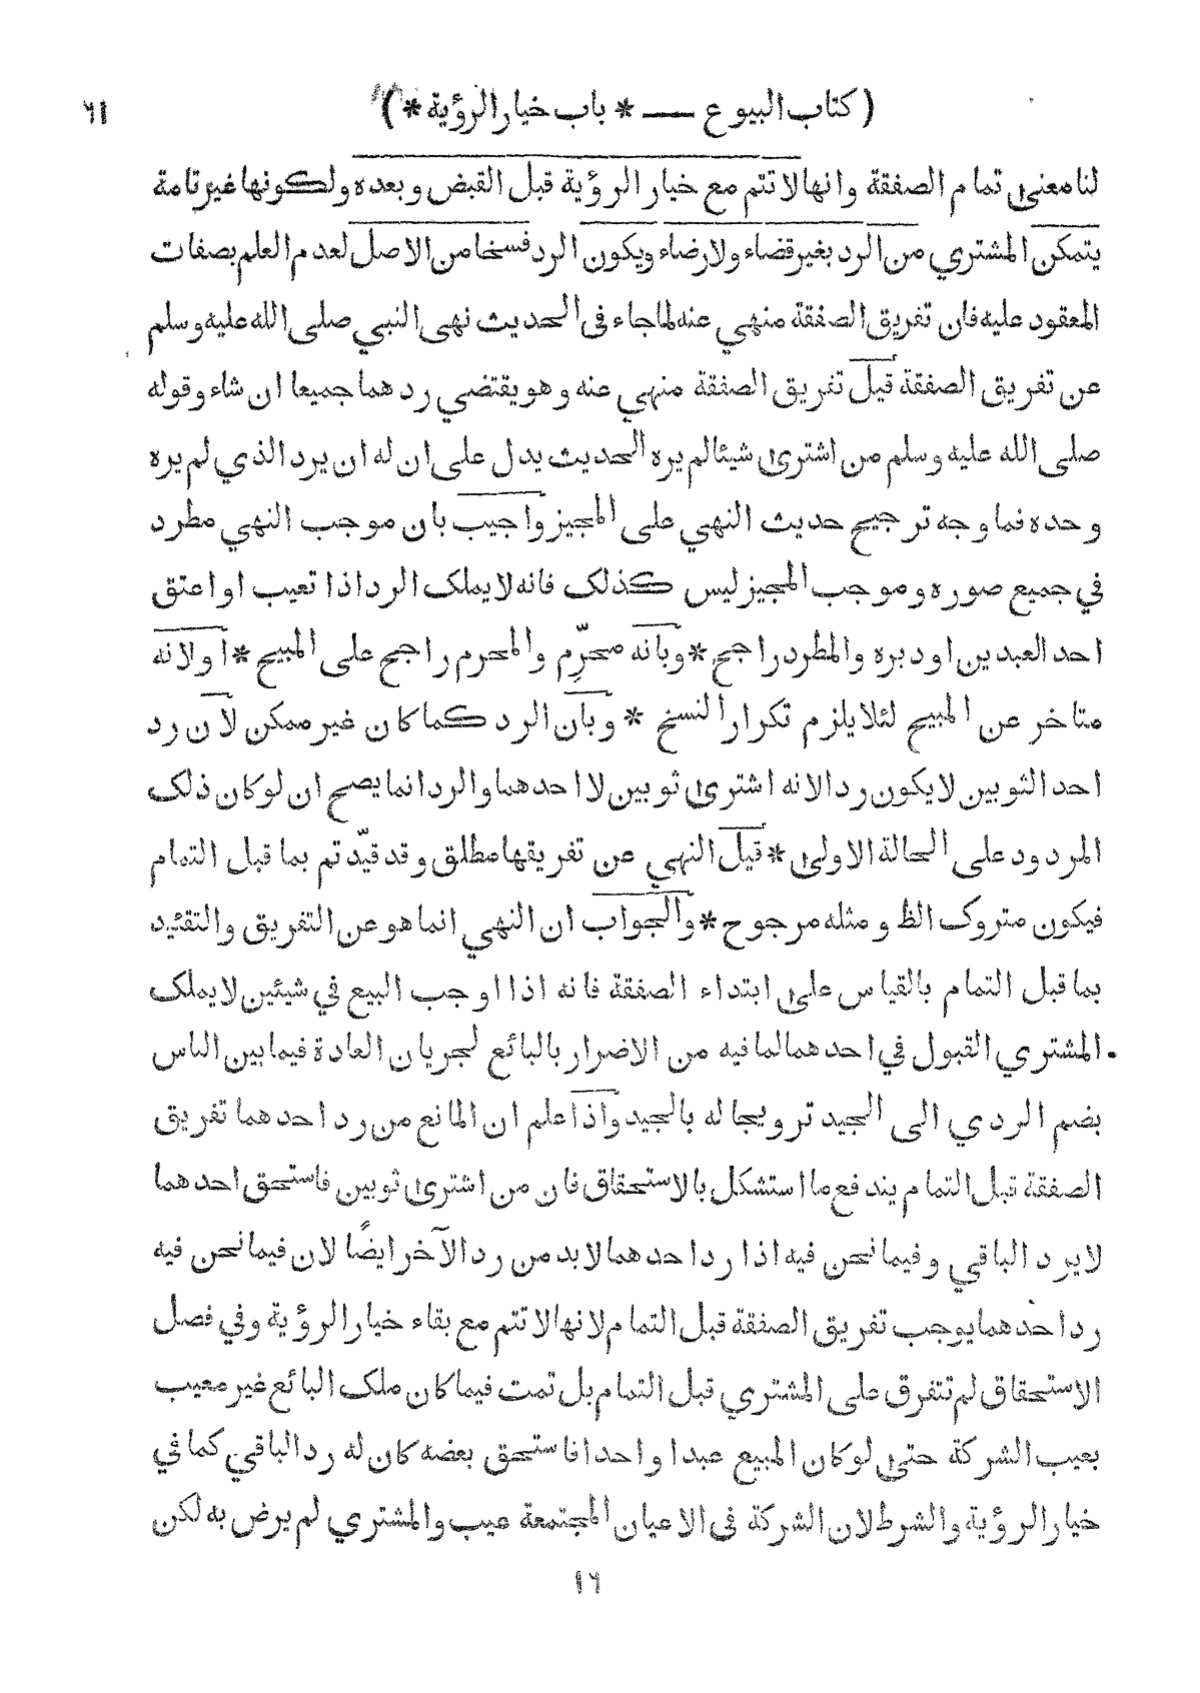 (كتاب البيوع — * باب خيار الرؤية *) ٦١
لنا معنى تمام الصفقة وانها لا تتم مع خيار الرؤية قبل القبض وبعده ولكونها غير تامة
يتمكن المشتري من الرد بغير قضاء ولا رضاء ويكون الرد فسخا من الاصل لعدم العلم بصفات
المعقود عليه فان تفريق الصفقة منهي عنه لما جاء في الحديث نهى النبي صلى الله عليه وسلم
عن تفريق الصفقة قيل تفريق الصفقة منهي عنه وهو يقتضي ردهما جميعا ان شاء وقوله
صلى الله عليه وسلم من اشترى شيئا لم يره الحديث يدل على ان له ان يرد الذي لم يره
وحده فما وجه ترجيح حديث النهي على المجيز واجيب بان موجب النهي مطرد
في جميع صوره وموجب المجيز ليس كذلك فانه لا يملك الرد اذا تعيب او اعتق
احد العبدين او دبره والمطرد راجح * وبانه محرّم والمحرم راجح على المبيح * او لانه
متاخر عن المبيح لئلا يلزم تكرار النسخ * وبان الرد كما كان غير ممكن لان رد
احد الثوبين لا يكون ردا لانه اشترى ثوبين لا احدهما والرد انما يصح ان لو كان ذلك
المردود على الحالة الاولى * قيل النهي عن تفريقها مطلق وقد قيّدتم بما قبل التمام
فيكون متروك الظ ومثله مرجوح * والجواب ان النهي انما هو عن التفريق والتقئيد
بما قبل التمام بالقياس على ابتداء الصفقة فانه اذا اوجب البيع في شيئين لا يملك
المشتري القبول في احدهما لما فيه من الاضرار بالبائع لجريان العادة فيما بين الناس
بضم الردي الى الجيد ترويجا له بالجيد واذا علم ان المانع من رد احدهما تفريق
الصفقة قبل التمام يندفع ما استشكل بالاستحقاق فان من اشترى ثوبين فاستحق احدهما
لا يرد الباقي وفيما نحن فيه اذا رد احدهما لا بد من رد الآخر ايضًا لان فيما نحن فيه
رد احدهما يوجب تفريق الصفقة قبل التمام لانها لا تتم مع بقاء خيار الرؤية وفي فصل
الاستحقاق لم تتفرق على المشتري قبل التمام بل تمت فيما كان ملك البائع غير معيب
بعيب الشركة حتى لو كان المبيع عبدا واحدا فاستحق بعضه كان له رد الباقي كما في
خيار الرؤية والشرط لان الشركة في الاعيان المجتمعة عيب والمشتري لم يرض به لكن
١٦